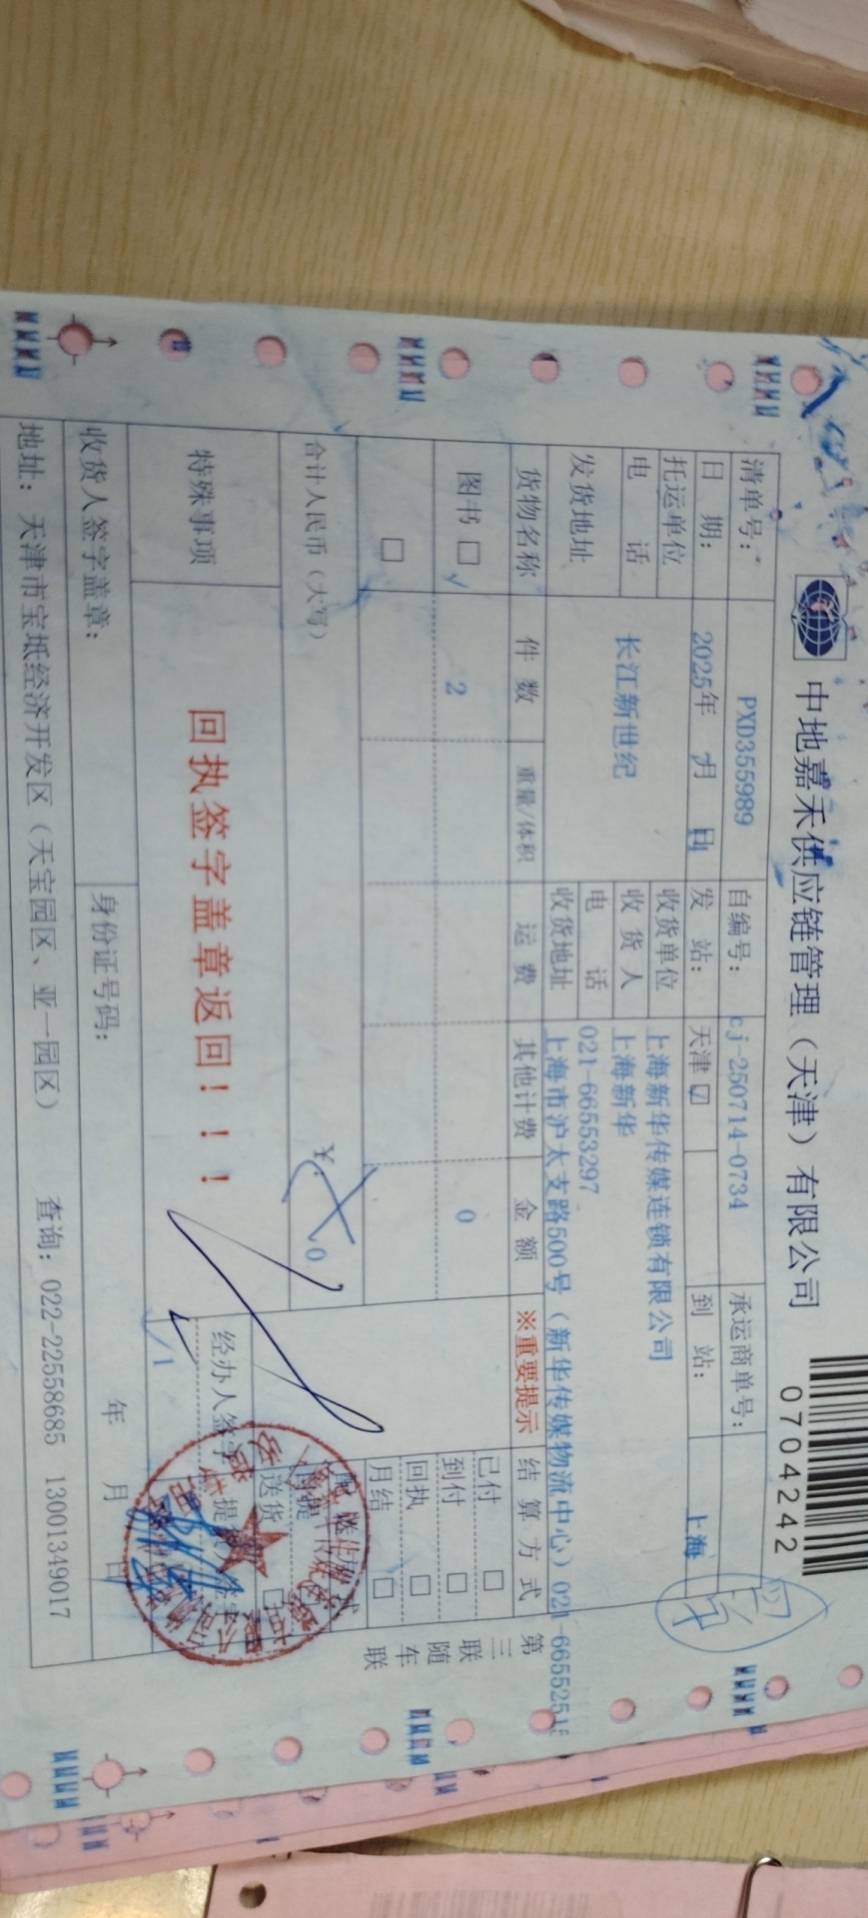 中地嘉禾供应链管理（天津）有限公司
0704242
清单号： PXD355989 自编号： cj-250714-0734 承运商单号：
日 期： 2025年 月 日 发 站： 天津 ☑ 到 站： 上海
托运单位 长江新世纪 收货单位 上海新华传媒连锁有限公司
电 话 收 货 人 上海新华
电 话 021-66553297
发货地址 收货地址 上海市沪太支路500号（新华传媒物流中心）021-6655251
货物名称 件 数 重量/体积 运 费 其他计费 金 额 ※重要提示 结 算 方 式
图书 □ 2 0
□
已付 □
到付 □
回执 □
月结 □
合计人民币（大写） ¥: 0
送货 □
特殊事项 回执签字盖章返回！！！
经办人签字
收货人签字盖章： 身份证号码： 年 月 日
地址：天津市宝坻经济开发区（天宝园区、亚一园区） 查询：022-22558685 13001349017
第三联 随车联